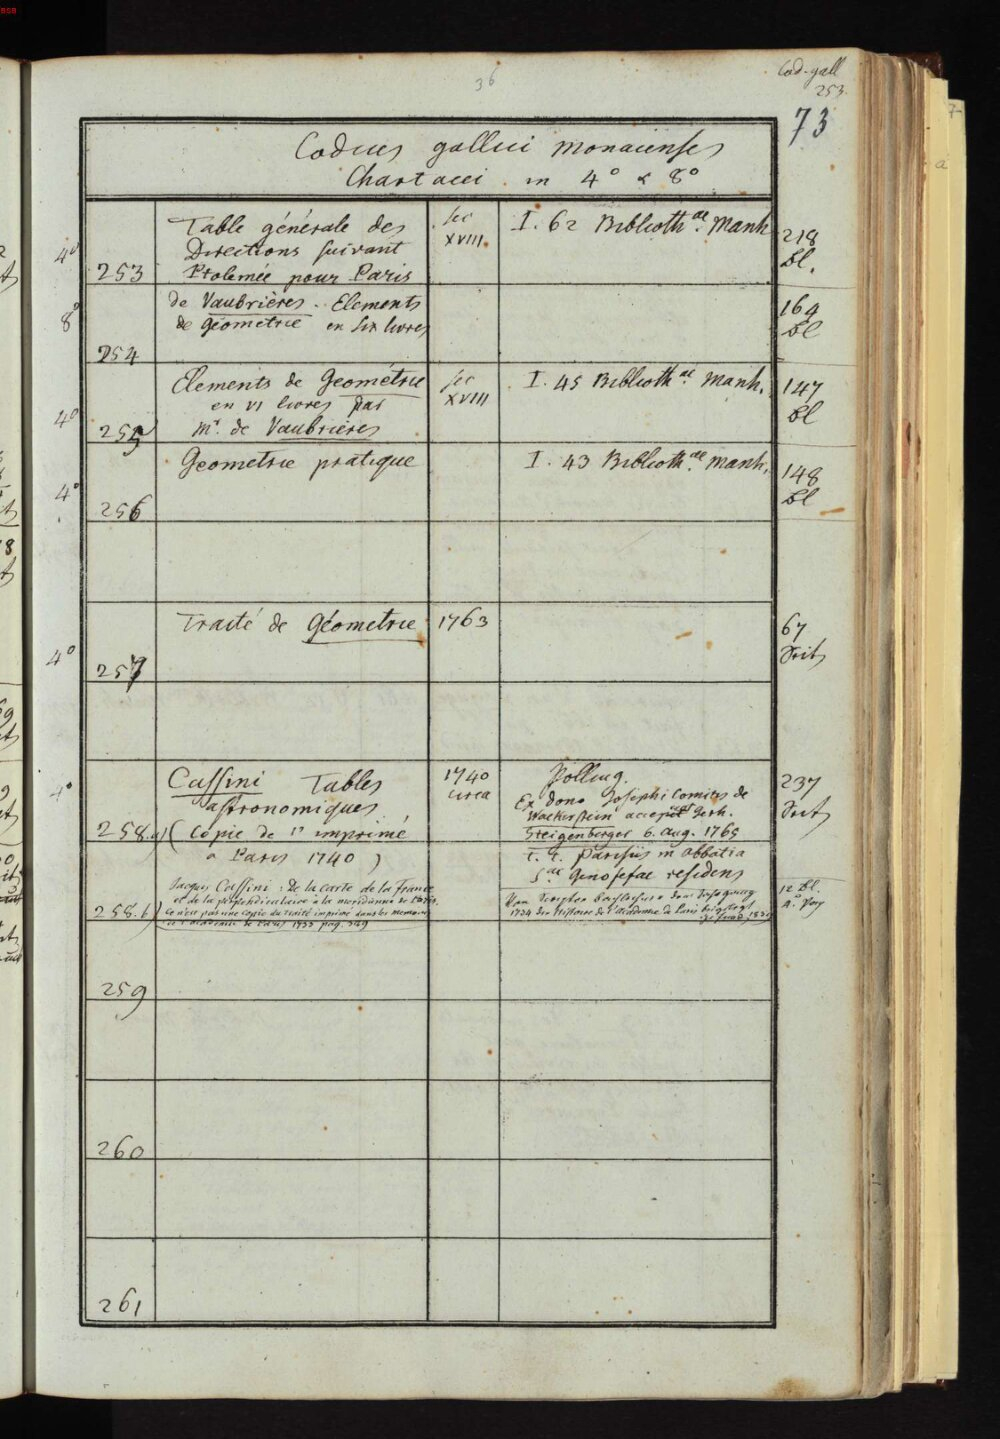 36
Cod. gall
253.
73
Codices gallici monacenses
Chartacei in 4° & 8°
4°
253
Table générale des
Directions suivant
Ptolemée pour Paris
sec
XVIII.
I. 62 Biblioth.ae Manh
218
Bl.
8°
254
de Vaubrières. Elements
de géometrie en six livres
164
Bl
4°
255
Elements de Geométrie
en VI livres par
mr. de Vaubrières
sec
XVIII
I. 45 Biblioth.ae Manh.
147
Bl
4°
256
Geometrie pratique
I. 43 Biblioth.ae Manh.
148
Bl
4°
257
Traité de Géometrie
1763
67
Seit
4°
258.a) (
Cassini Tables
astronomiques
Copie de l' imprimé
a Paris 1740 )
1740
circa
Polling.
Ex dono Josephi Comitis de
Wackerstein accepit Gerh.
Steigenberger 6. Aug. 1765
t. t. Parisiis in abbatia
S.ae Genofefae residens
237
Seit
258.b)
Jacques Cassini : De la carte de la France
et de la perpendiculaire à la meridienne de Paris.
Ce n'est pas une Copie du traité imprimé dans les Memoires
de l'academie de Paris 1733 pag. 389
1734 der Histoire de l'Academie de Paris
12 Bl.
259
260
261